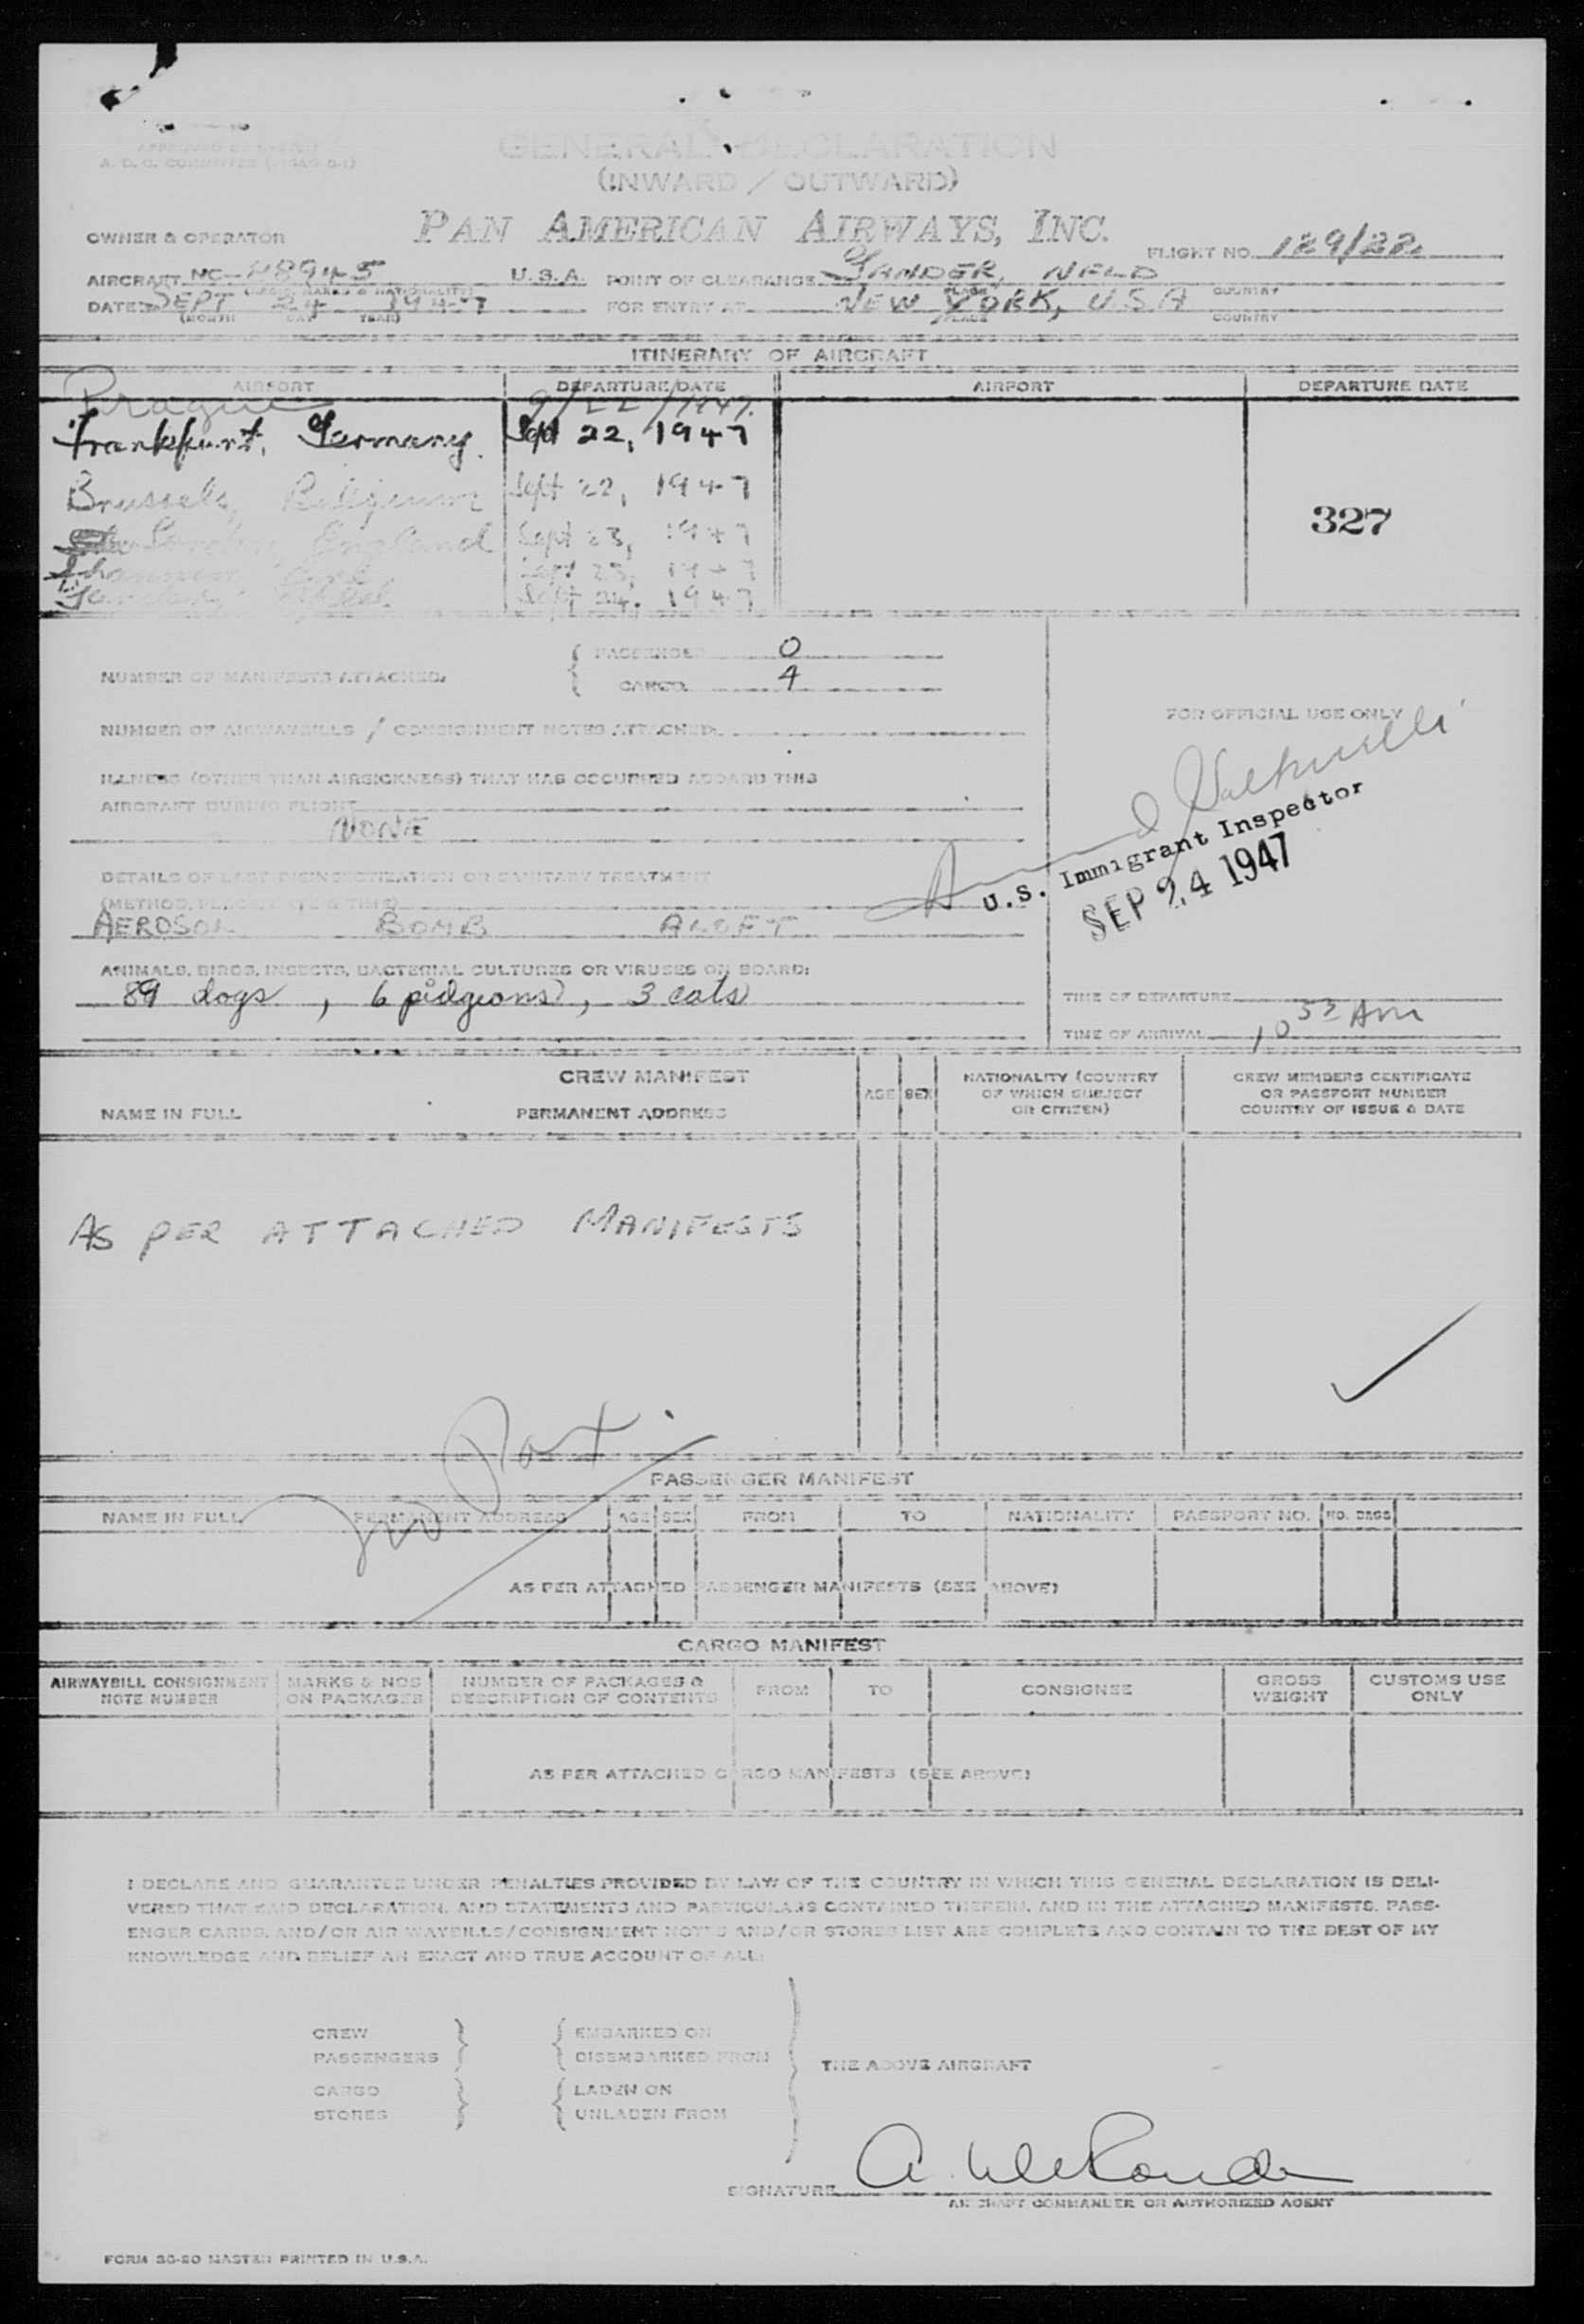 GENERAL DECLARATION
(INWARD / OUTWARD)
PAN AMERICAN AIRWAYS, INC.
OWNER & OPERATOR
FLIGHT NO. 129/22
AIRCRAFT NC-88945 U.S.A. POINT OF CLEARANCE GANDER, NFLD
(MARKS & NATIONALITY) PLACE COUNTRY
DATE SEPT 24 1947 FOR ENTRY AT NEW YORK, U.S.A
(MONTH DAY YEAR) PLACE COUNTRY
ITINERARY OF AIRCRAFT
AIRPORT DEPARTURE DATE AIRPORT DEPARTURE DATE
Prague 9/22/1947.
Frankfurt, Germany. Sept 22, 1947
Brussels, Belgium Sept 22, 1947
London England Sept 23, 1947
327
Shannon Eire Sept 23, 1947
Gander, Nfld. Sept 24, 1947
PASSENGER 0
NUMBER OF MANIFESTS ATTACHED.
CARGO 4
FOR OFFICIAL USE ONLY
NUMBER OF AIRWAYBILLS / CONSIGNMENT NOTES ATTACHED.
ILLNESS (OTHER THAN AIRSICKNESS) THAT HAS OCCURRED ABOARD THIS
AIRCRAFT DURING FLIGHT
NONE
U.S. Immigrant Inspector
SEP 24 1947
DETAILS OF LAST DISINSECTIZATION OR SANITARY TREATMENT
(METHOD, PLACE, DATE & TIME)
AEROSOL BOMB ALOFT
ANIMALS, BIRDS, INSECTS, BACTERIAL CULTURES OR VIRUSES ON BOARD:
89 dogs, 6 pidgeons, 3 cats
TIME OF DEPARTURE
TIME OF ARRIVAL 10 53 AM
CREW MANIFEST
NAME IN FULL PERMANENT ADDRESS AGE SEX NATIONALITY (COUNTRY OF WHICH SUBJECT OR CITIZEN) CREW MEMBERS CERTIFICATE OR PASSPORT NUMBER COUNTRY OF ISSUE & DATE
AS PER ATTACHED MANIFESTS
No Pax.
PASSENGER MANIFEST
NAME IN FULL PERMANENT ADDRESS AGE SEX FROM TO NATIONALITY PASSPORT NO. NO. BAGS
AS PER ATTACHED PASSENGER MANIFESTS (SEE ABOVE)
CARGO MANIFEST
AIRWAYBILL CONSIGNMENT NOTE NUMBER MARKS & NOS ON PACKAGES NUMBER OF PACKAGES & DESCRIPTION OF CONTENTS FROM TO CONSIGNEE GROSS WEIGHT CUSTOMS USE ONLY
AS PER ATTACHED CARGO MANIFESTS (SEE ABOVE)
I DECLARE AND GUARANTEE UNDER PENALTIES PROVIDED BY LAW OF THE COUNTRY IN WHICH THIS GENERAL DECLARATION IS DELI-
VERED THAT SAID DECLARATION, AND STATEMENTS AND PARTICULARS CONTAINED THEREIN, AND IN THE ATTACHED MANIFESTS, PASS-
ENGER CARDS, AND/OR AIR WAYBILLS/CONSIGNMENT NOTES AND/OR STORES LIST ARE COMPLETE AND CONTAIN TO THE BEST OF MY
KNOWLEDGE AND BELIEF AN EXACT AND TRUE ACCOUNT OF ALL:
CREW EMBARKED ON
PASSENGERS DISEMBARKED FROM
THE ABOVE AIRCRAFT
CARGO LADEN ON
STORES UNLADEN FROM
SIGNATURE
AIRCRAFT COMMANDER OR AUTHORIZED AGENT
FORM 30-20 MASTER PRINTED IN U.S.A.